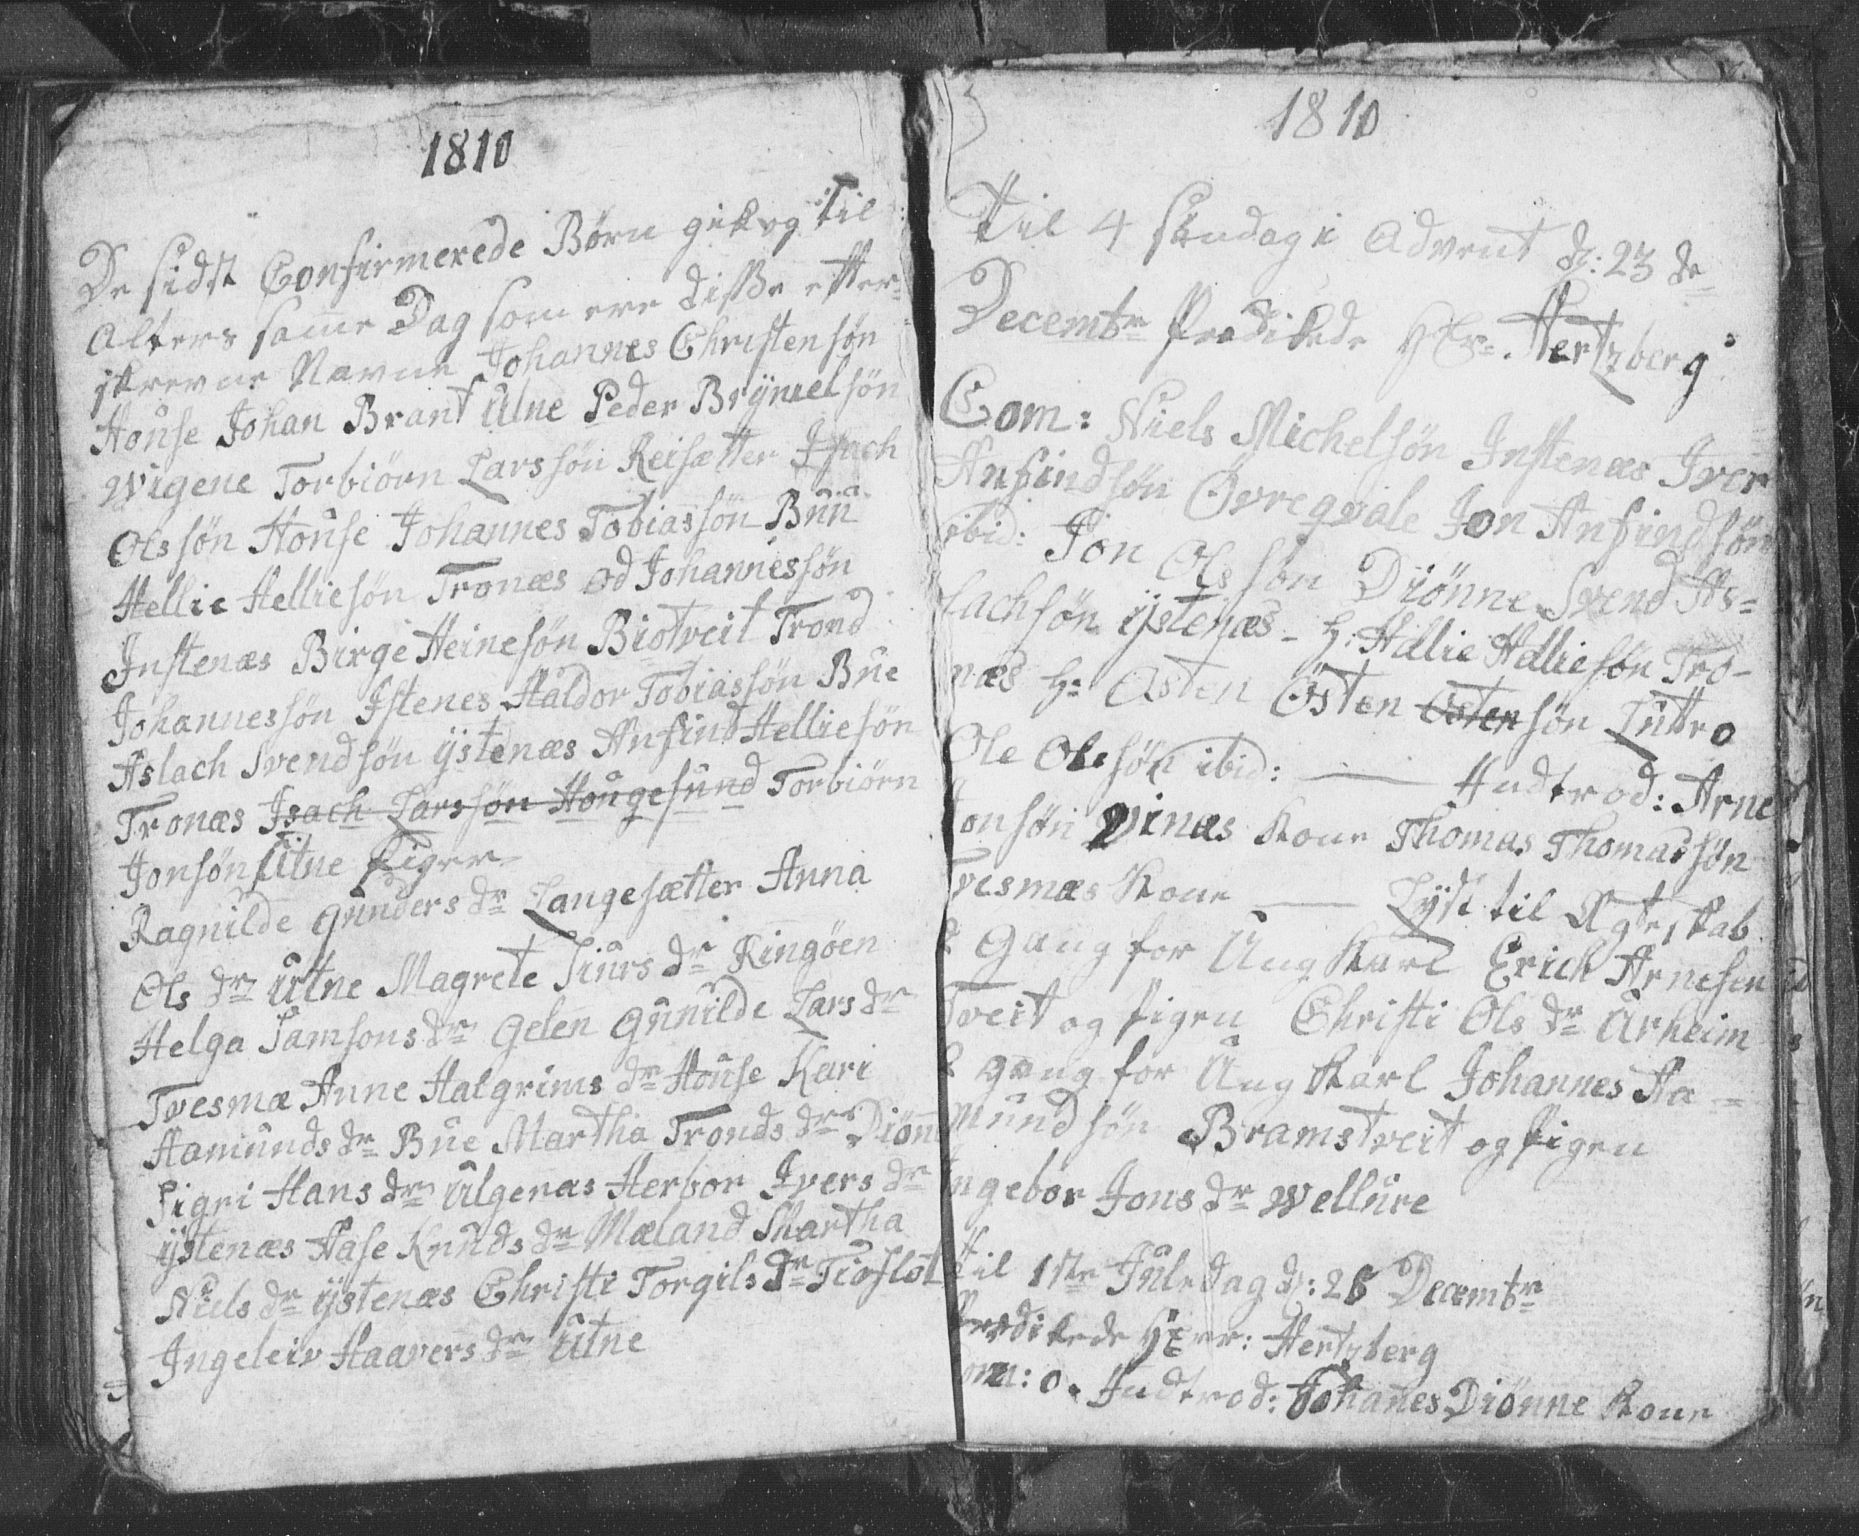 1810
De sidst Confirmerede Børn gik og til
Alters samme Dag som ere disse efter-
skrevne Navne Johannes Christensøn
House Johan Brant Utne Peder Brynielsøn
Wigene Torbiörn Larssøn Reisætter Isach
Olssøn House Johannes Tobiassøn Buu
Hellie Helliesøn Tronæs Od Johannessøn
Instenæs Birge Heinesøn Biotveit Trond
Johannessøn Istenes Haldor Tobiassøn Bue
Aslach Svendsøn ÿstenæs Anfind Helliesøn
Tronæs Isach Larssøn Hougesund Torbiörn
Jonsøn Utne Piger
Ragnilde Gunders dr Langesætter Anna
Ols dr Utne Magrete Siurs dr Ringøen
Helga Samsons dr Gelen Gunilde Lars dr
Tvesmæ Anne Halgrims dr House Kari
Aamunds dr Bue Martha Tronds dr Diönn
Sigri Hans dr Ulgenæs Herbor Ivers dr
ÿstenæs Aase Knuds dr Mæland Martha
Niels dr ÿstenæs Christi Torgils dr Tioflot
Ingeleiv Haavers dr Utne
1810
Til 4 Søndag i Advent d: 23 de
Decembr Predikede Hr. Hertzberg
Com: Niels Michelsøn Instenæs Iver
Anfindsøn Övreqvale Jon Anfindsøn
ibid: Jon Olssøn Diönne Svend As=
lachsøn ÿstenæs - H: Hellie Helliesøn Tro-
næs H: Østen Østen Østensøn Luttro
Ole Olssøn ibid: — Indtrod: Arne
Jonsøn Vinæs Kone Thomas Thomassøn
Tvesmæs Kone — Lyst til Ægteskab
2 Gang for Ung Karl Erich Arnesen
Tveit og Pigen Christi Ols dr Urheim
2 gang for Ung Karl Johannes Aa=
mundsøn Bramstveit og Pigen
Ingebor Jons dr Wellure
Til 1ste Juledag d: 25 Decembr
Predikede Herr: Hertzberg
om: 0. Indtrod: Johanes Diönne Kone